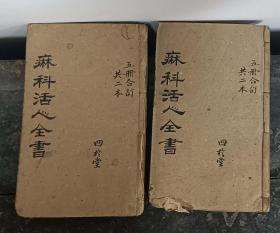 麻科活人全書
五冊合訂
共二本
四於堂
麻科活人全書
五冊合訂
共二本
四於堂